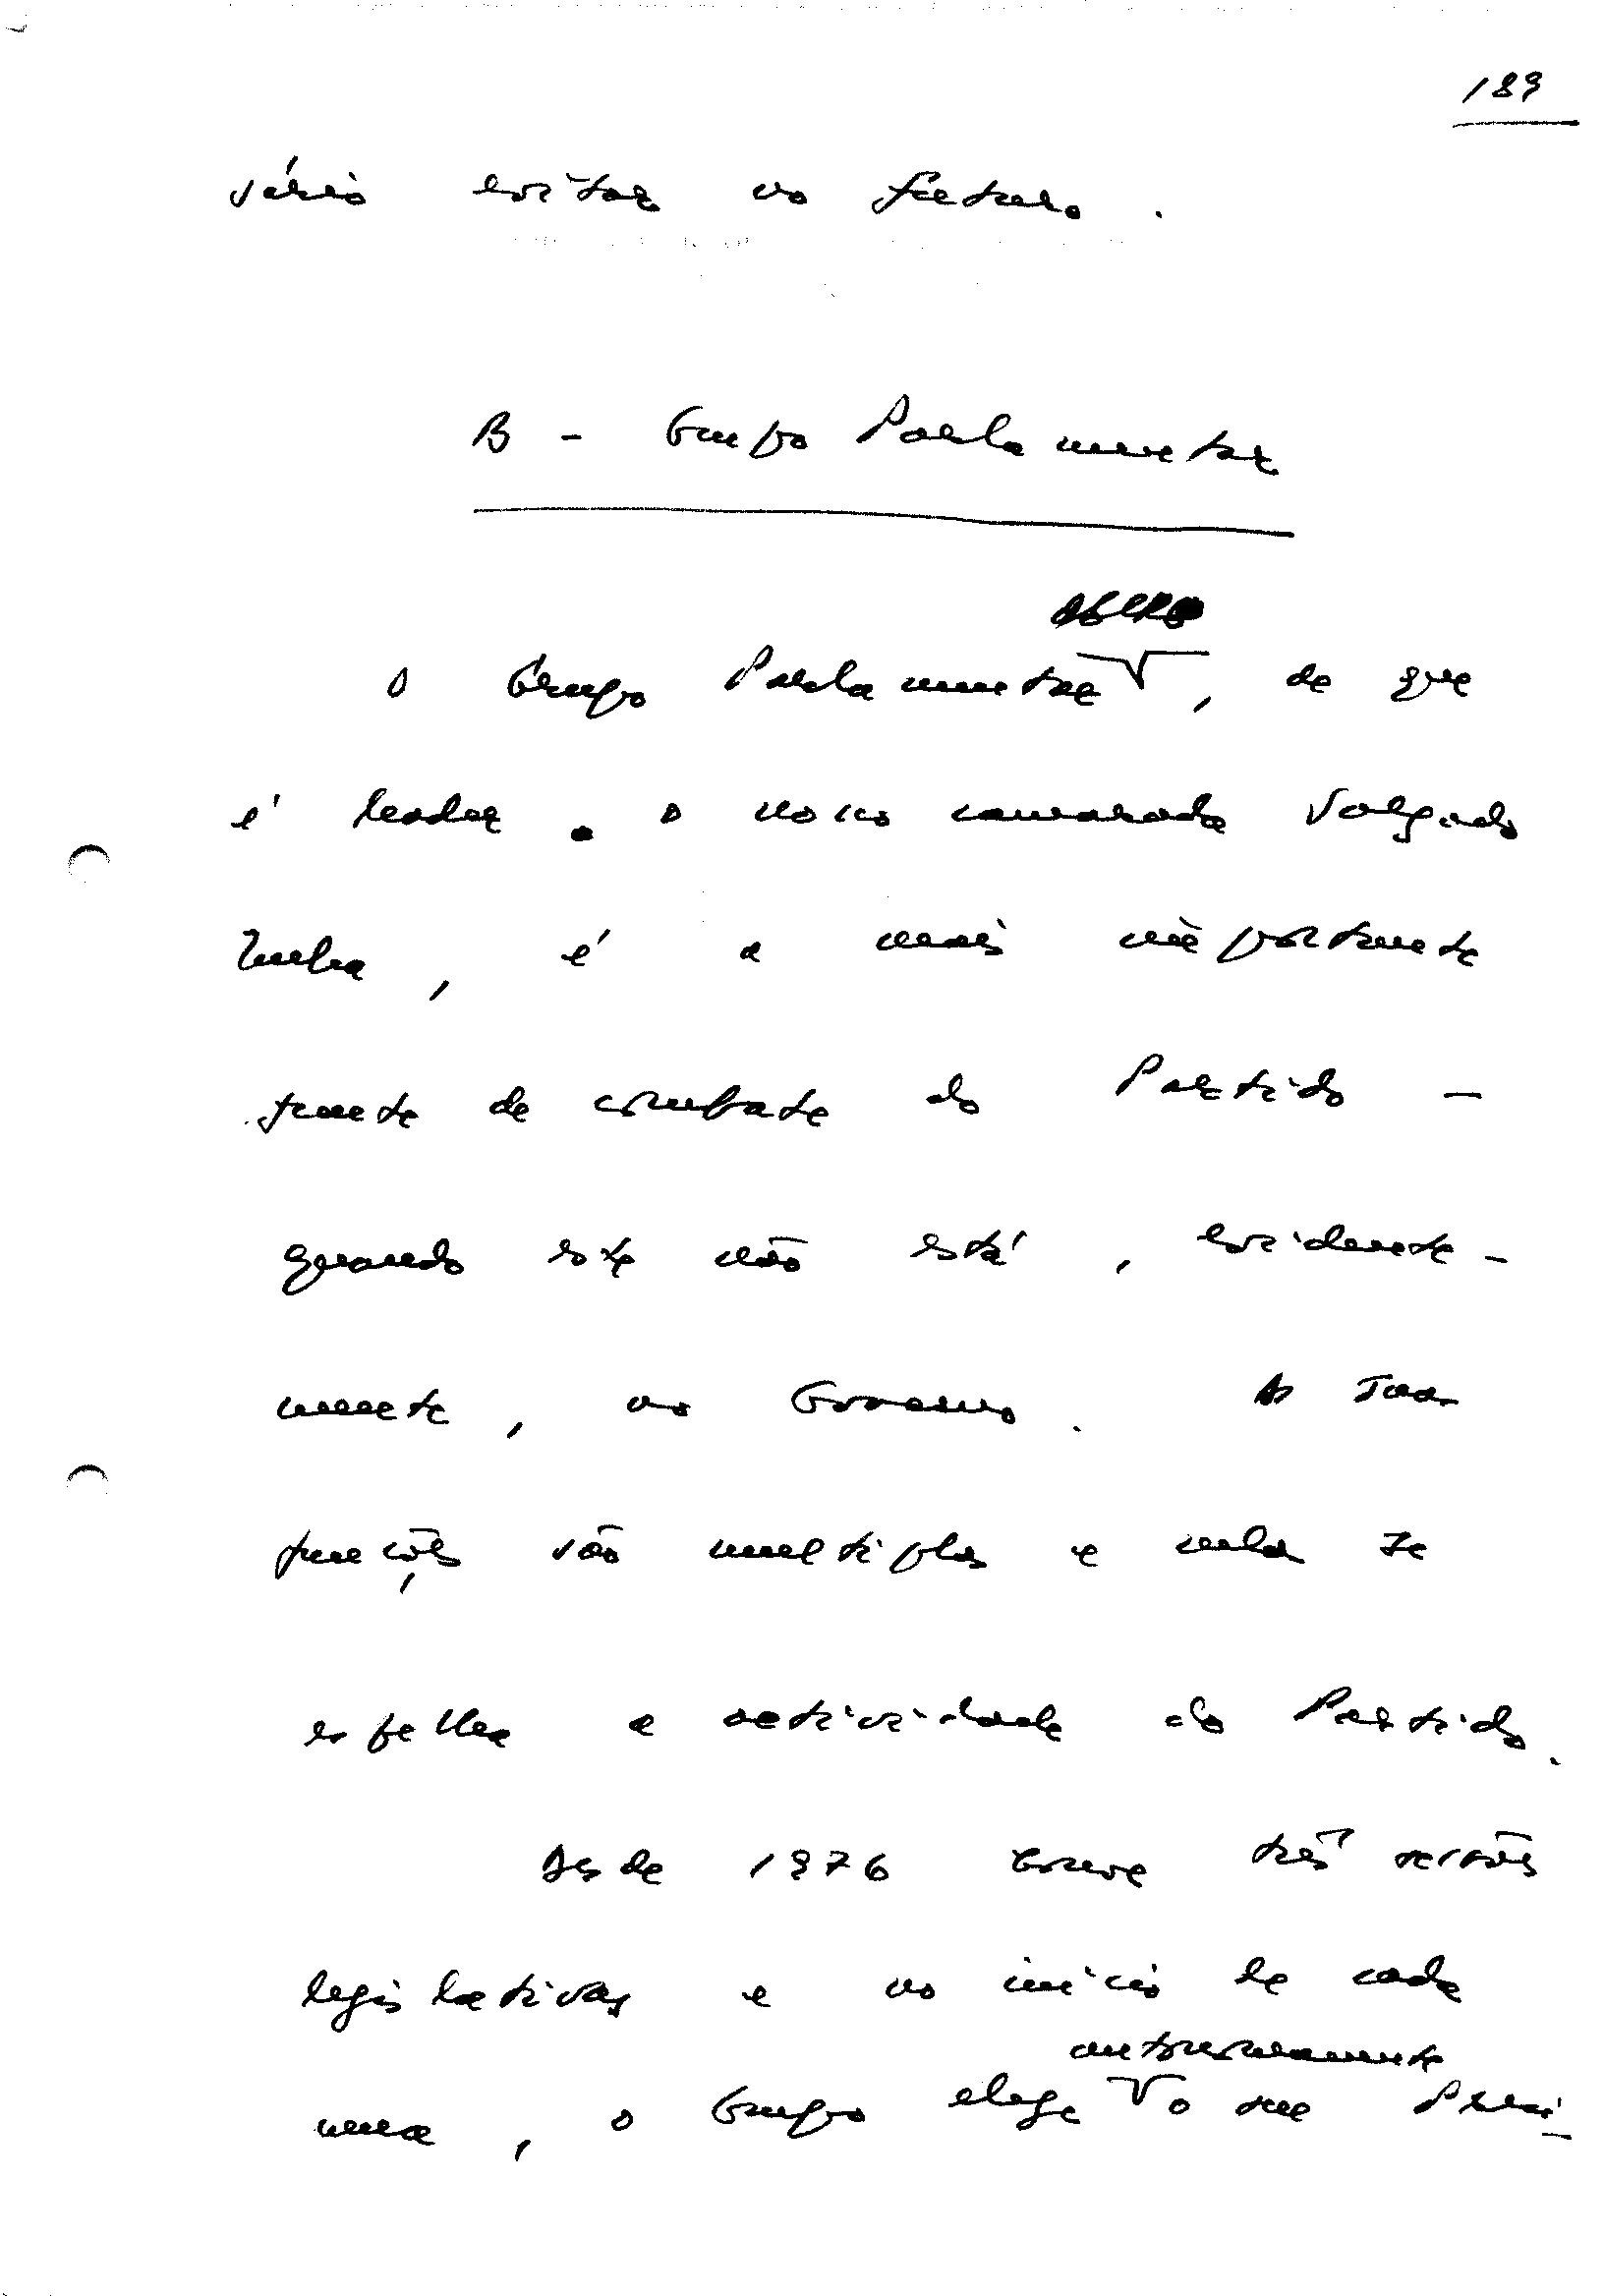 189
sário evitar no futuro.
B - Grupo Parlamentar
O Grupo Parlamentar, de que
é leader o nosso camarada Salgado
Zenha, é a mais importante
frente de combate do Partido -
quando este não está, evidente-
mente, no Governo. As suas
funções são multiplas e nelas se
espelha a actividade do Partido.
Desde 1976 houve três sessões
legislativas e no início de cada
uma, o Grupo elege o seu Presi-